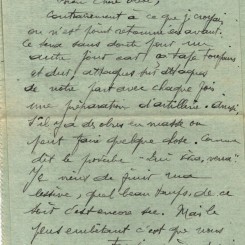 Mon
Contrairement à ce que je croyais
on n'est pas retourné en avant.
Ce sera sans doute pour un
autre jour car ça tape toujours
et dur, attaques sur attaques
de notre part avec chaque fois
une préparation d'artillerie. Aussi
s'il y a des obus en masse on
peut faire quelque chose. Comme
dit le proverbe
Je viens de finir ma
lessive, quel beau temps, de ce
soir c'est encore sec. Mais le
plus embêtant c'est que nous